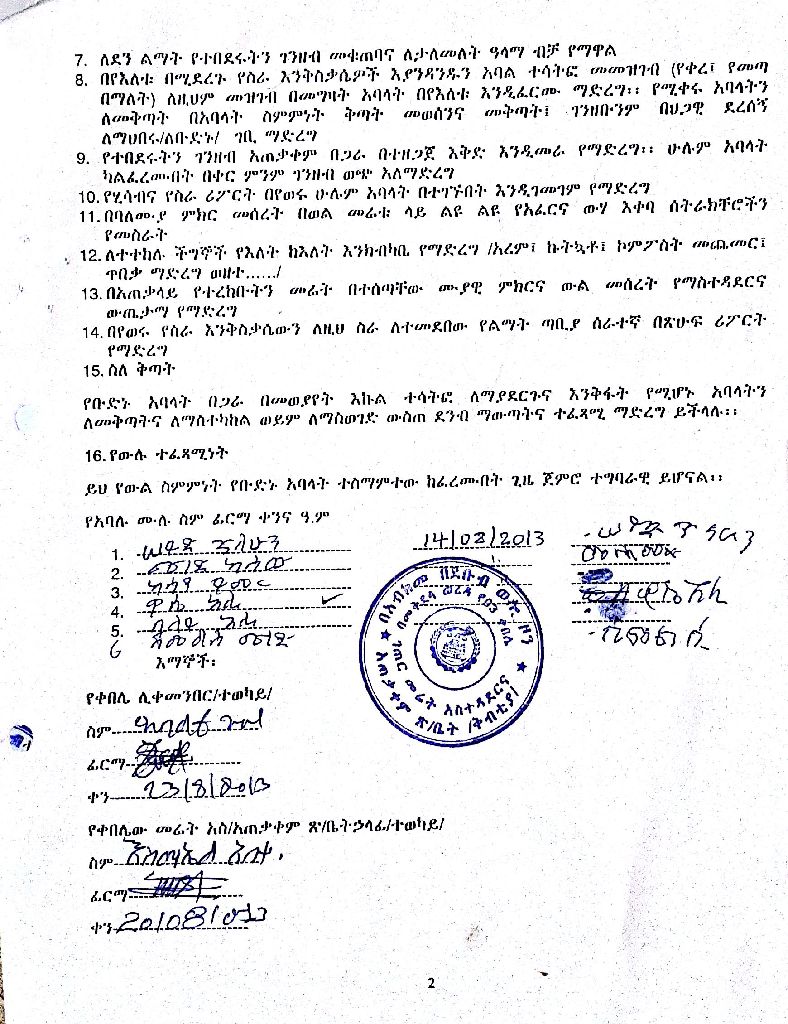 7. ለደን ልማት የተበደሩትን ገንዘብ መቁጠባና ለታለመለት ዓላማ ብቻ የማዋል
8. በየእለቱ በሚደረጉ የስራ እንቅስቃሴዎች እያንዳንዱን አባል ተሳትፎ መመዝገብ (የቀረ፣ የመጣ
በማለት) ለዚህም መዝገብ በመግዛት አባላት በየእለቱ እንዲፈርሙ ማድረግ፡፡ የሚቀሩ አባላትን
ለመቅጣት በአባላት ስምምነት ቅጣት መወሰንና መቅጣት፤ ገንዘቡንም በህጋዊ ደረሰኝ
ለማህበሩ/ለቡድኑ/ ገቢ ማድረግ
9. የተበደሩትን ገንዘብ አጠቃቀም በጋራ በተዘጋጀ እቅድ እንዲመራ የማድረግ፡፡ ሁሉም አባላት
ካልፈረሙበት በቀር ምንም ገንዘብ ወጭ አለማድረግ
10. የሂሳብና የስራ ሪፖርት በየወሩ ሁሉም አባላት በተገኙበት እንዲገመገም የማድረግ
11. በባለሙያ ምክር መሰረት በወል መሬቱ ላይ ልዩ ልዩ የአፈርና ውሃ እቀባ ስትራክቸሮችን
የመስራት
12. ለተተከሉ ችግኞች የእለት ከእለት እንክብካቤ የማድረግ /አረም፣ ኩትኳቶ፣ ኮምፖስት መጨመር፣
ጥበቃ ማድረግ ወዘተ....../
13. በአጠቃላይ የተረከቡትን መሬት በተሰጣቸው ሙያዊ ምክርና ውል መሰረት የማስተዳደርና
ውጤታማ የማድረግ
14. በየወሩ የስራ እንቅስቃሴውን ለዚህ ስራ ለተመደበው የልማት ጣቢያ ሰራተኛ በጽሁፍ ሪፖርት
የማድረግ
15. ስለ ቅጣት
የቡድኑ አባላት በጋራ በመወያየት እኩል ተሳትፎ ለማያደርጉና እንቅፋት የሚሆኑ አባላትን
ለመቅጣትና ለማስተካከል ወይም ለማስወገድ ውስጠ ደንብ ማውጣትና ተፈጻሚ ማድረግ ይችላሉ፡፡
16. የውሉ ተፈጻሚነት
ይህ የውል ስምምነት የቡድኑ አባላት ተስማምተው ከፈረሙበት ጊዜ ጀምሮ ተግባራዊ ይሆናል፡፡
የአባሉ ሙሉ ስም ፊርማ ቀንና ዓ.ም
1.
14/08/2013
2.
3.
4.
5.
6
እማኞች፡
የቀበሌ ሊቀመንበር/ተወካይ/
ስም
ፊርማ
ቀን 23/8/2013
የቀበሌው መሬት አስ/አጠቃቀም ጽ/ቤት ኃላፊ/ተወካይ/
ስም
ፊርማ
ቀን 20/08/2013
2